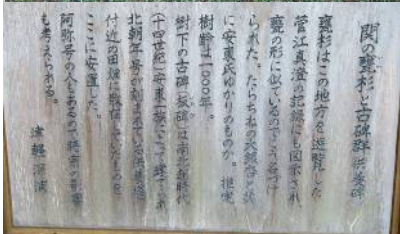 関の甕杉と古碑群 供養碑
甕杉はこの地方を遊覧した
菅江真澄の記録にも図示され
甕の形に似ているのでこう名づけ
られた。たらちねの大銀杏と共
に安東氏ゆかりのものか。推定
樹齢一〇〇〇年。
樹下の古碑(板碑)は南北朝時代
(十四世紀)安東一族によって建てられ
北朝年号が刻まれている供養塔
付近の田畑に散在していたものを
ここに安置した。
阿弥号の人もあるので時宗の影響
も考えられる。
津軽深浦